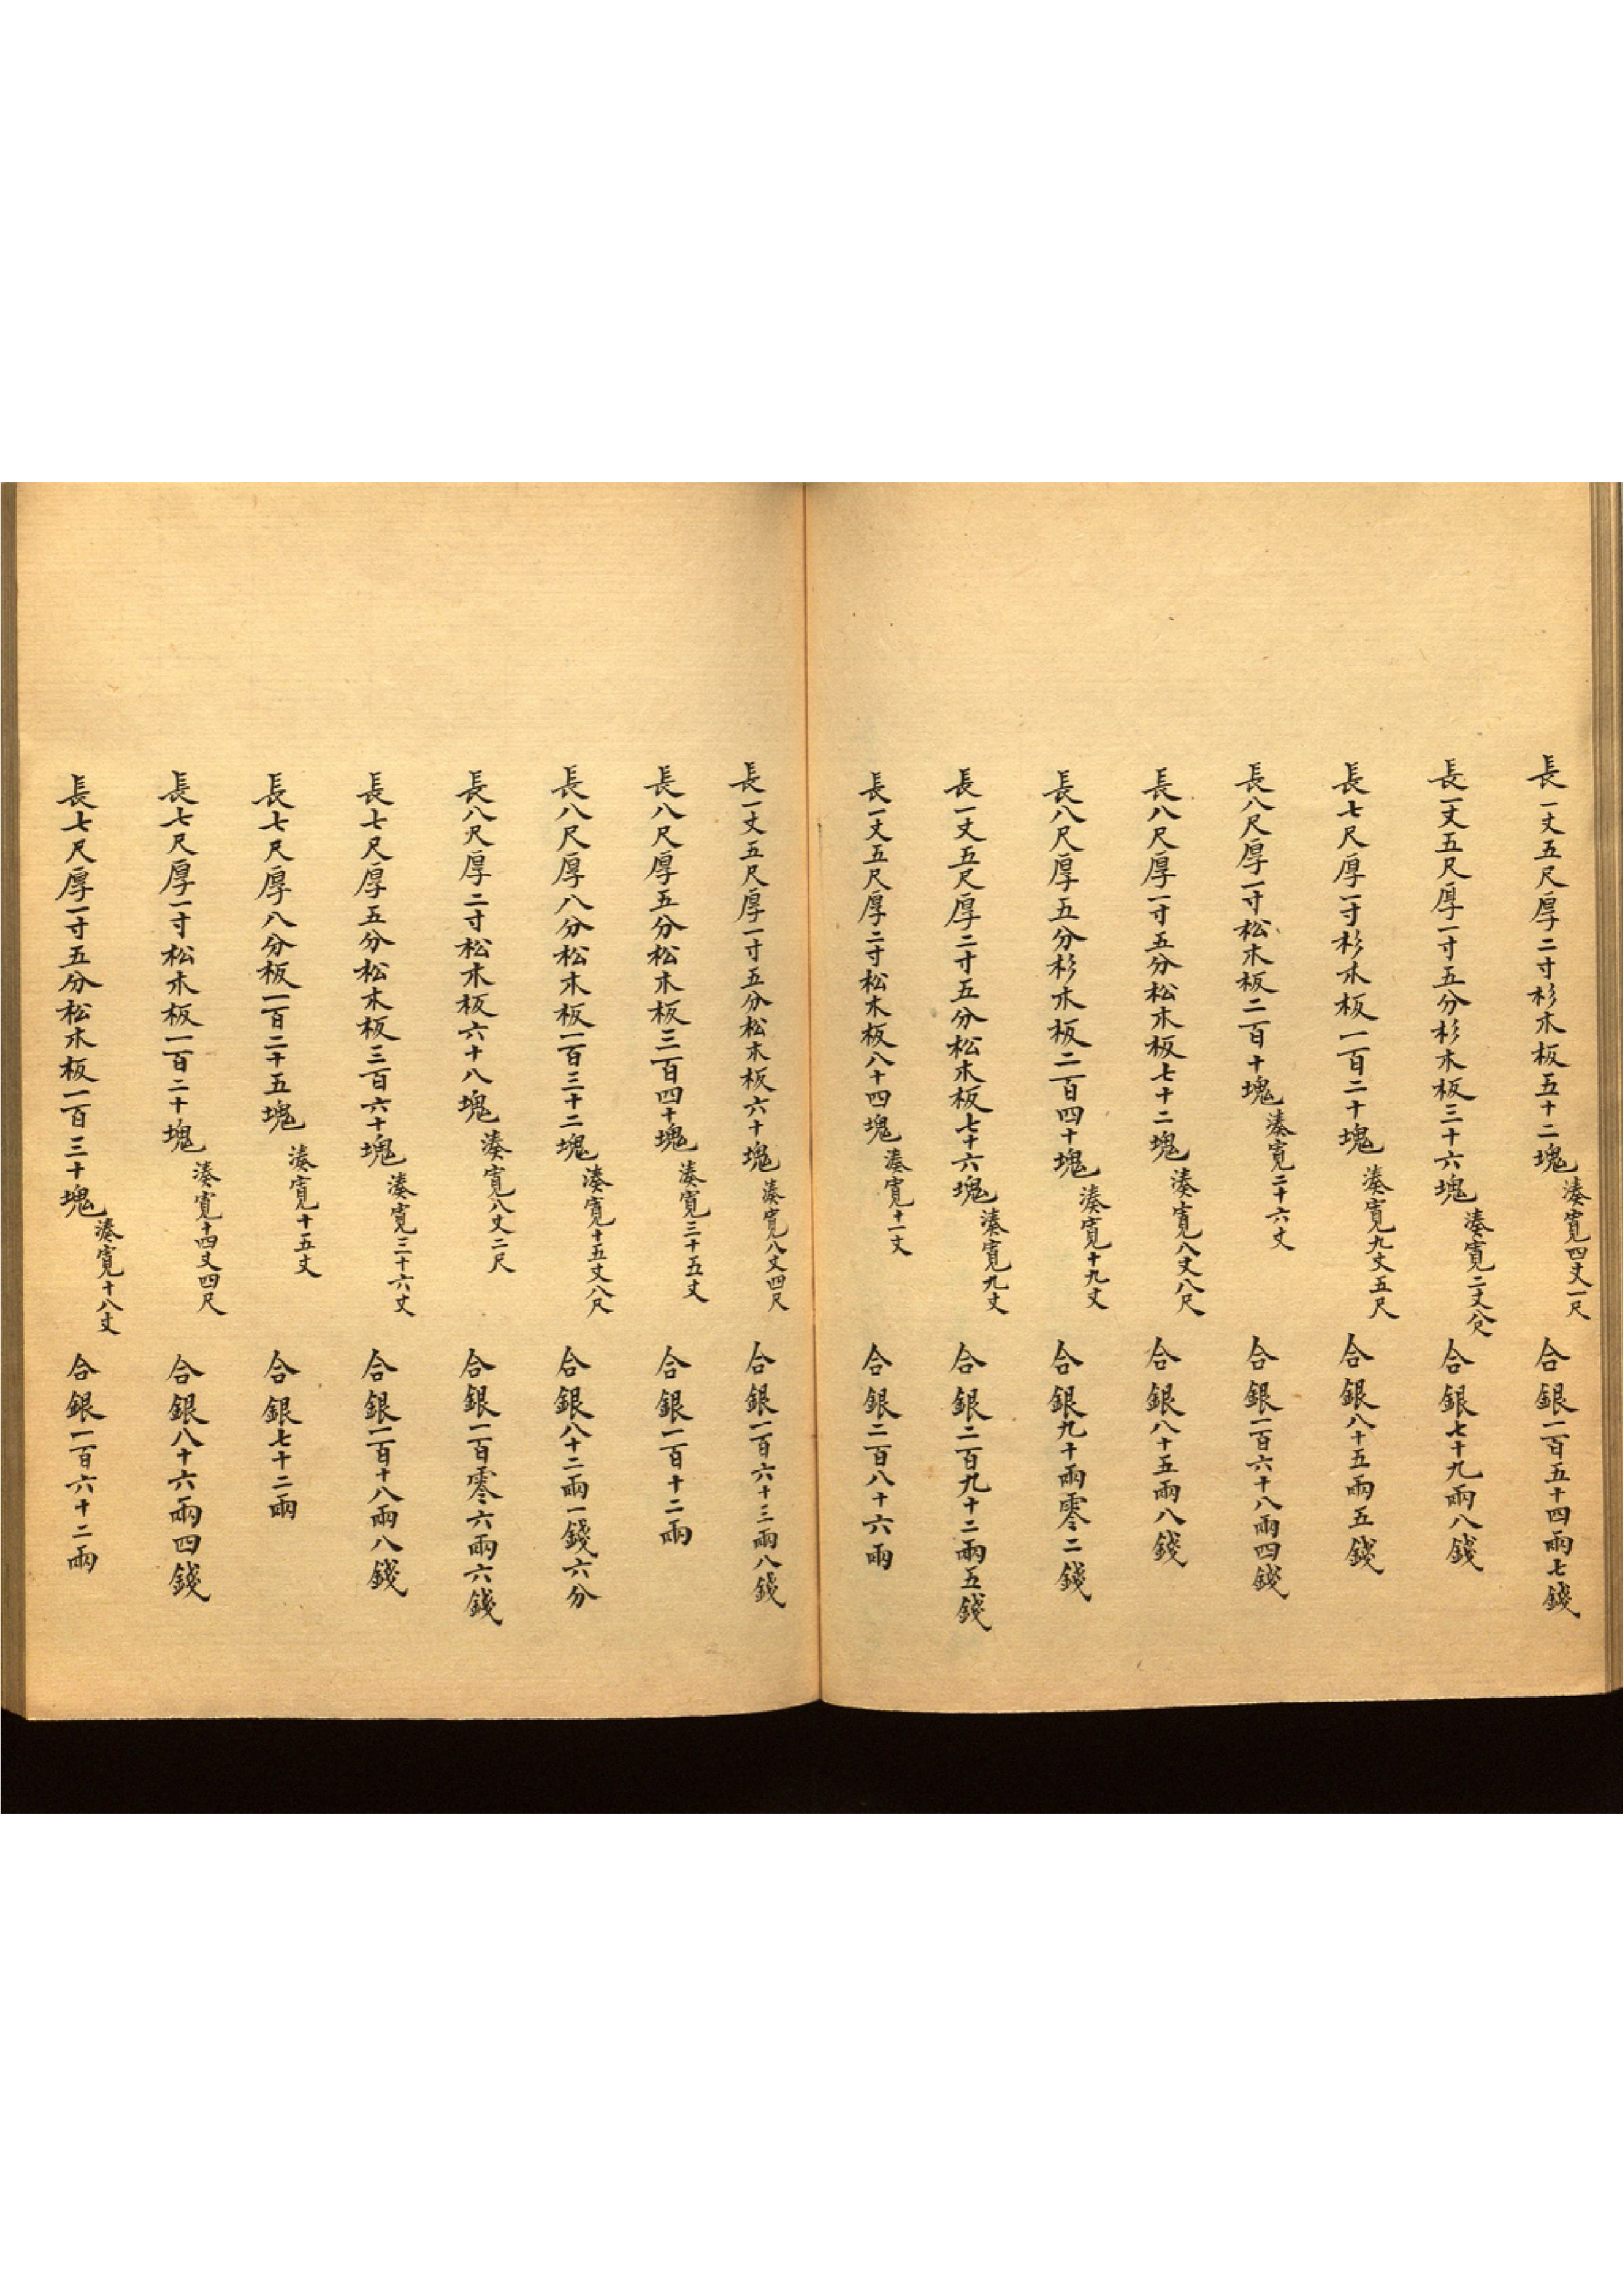 長一丈五尺厚二寸杉木板五十二塊湊寬四丈一尺合銀一百五十四兩七錢
長一丈五尺厚一寸五分杉木板三十六塊湊寬二丈八尺合銀七十九兩八錢
長七尺厚一寸杉木板一百二十塊湊寬九丈五尺合銀八十五兩五錢
長八尺厚一寸松木板二百十塊湊寬二十六丈合銀一百六十八兩四錢
長八尺厚一寸五分松木板七十二塊湊寬八丈八尺合銀八十五兩八錢
長八尺厚五分杉木板二百四十塊湊寬十九丈合銀九十兩零二錢
長一丈五尺厚二寸五分松木板七十六塊湊寬九丈合銀二百九十二兩五錢
長一丈五尺厚二寸松木板八十四塊湊寬十一丈合銀二百八十六兩
長一丈五尺厚一寸五分松木板六十塊湊寬八丈四尺合銀一百六十三兩八錢
長八尺厚五分松木板三百四十塊湊寬三十五丈合銀一百十二兩
長八尺厚八分松木板一百三十二塊湊寬十五丈八尺合銀八十二兩一錢六分
長八尺厚二寸松木板六十八塊湊寬八丈二尺合銀一百零六兩六錢
長七尺厚五分松木板三百六十塊湊寬三十六丈合銀一百十八兩八錢
長七尺厚八分板一百二十五塊湊寬十五丈合銀七十二兩
長七尺厚一寸松木板一百二十塊湊寬十四丈四尺合銀八十六兩四錢
長七尺厚一寸五分松木板一百三十塊湊寬十八丈合銀一百六十二兩